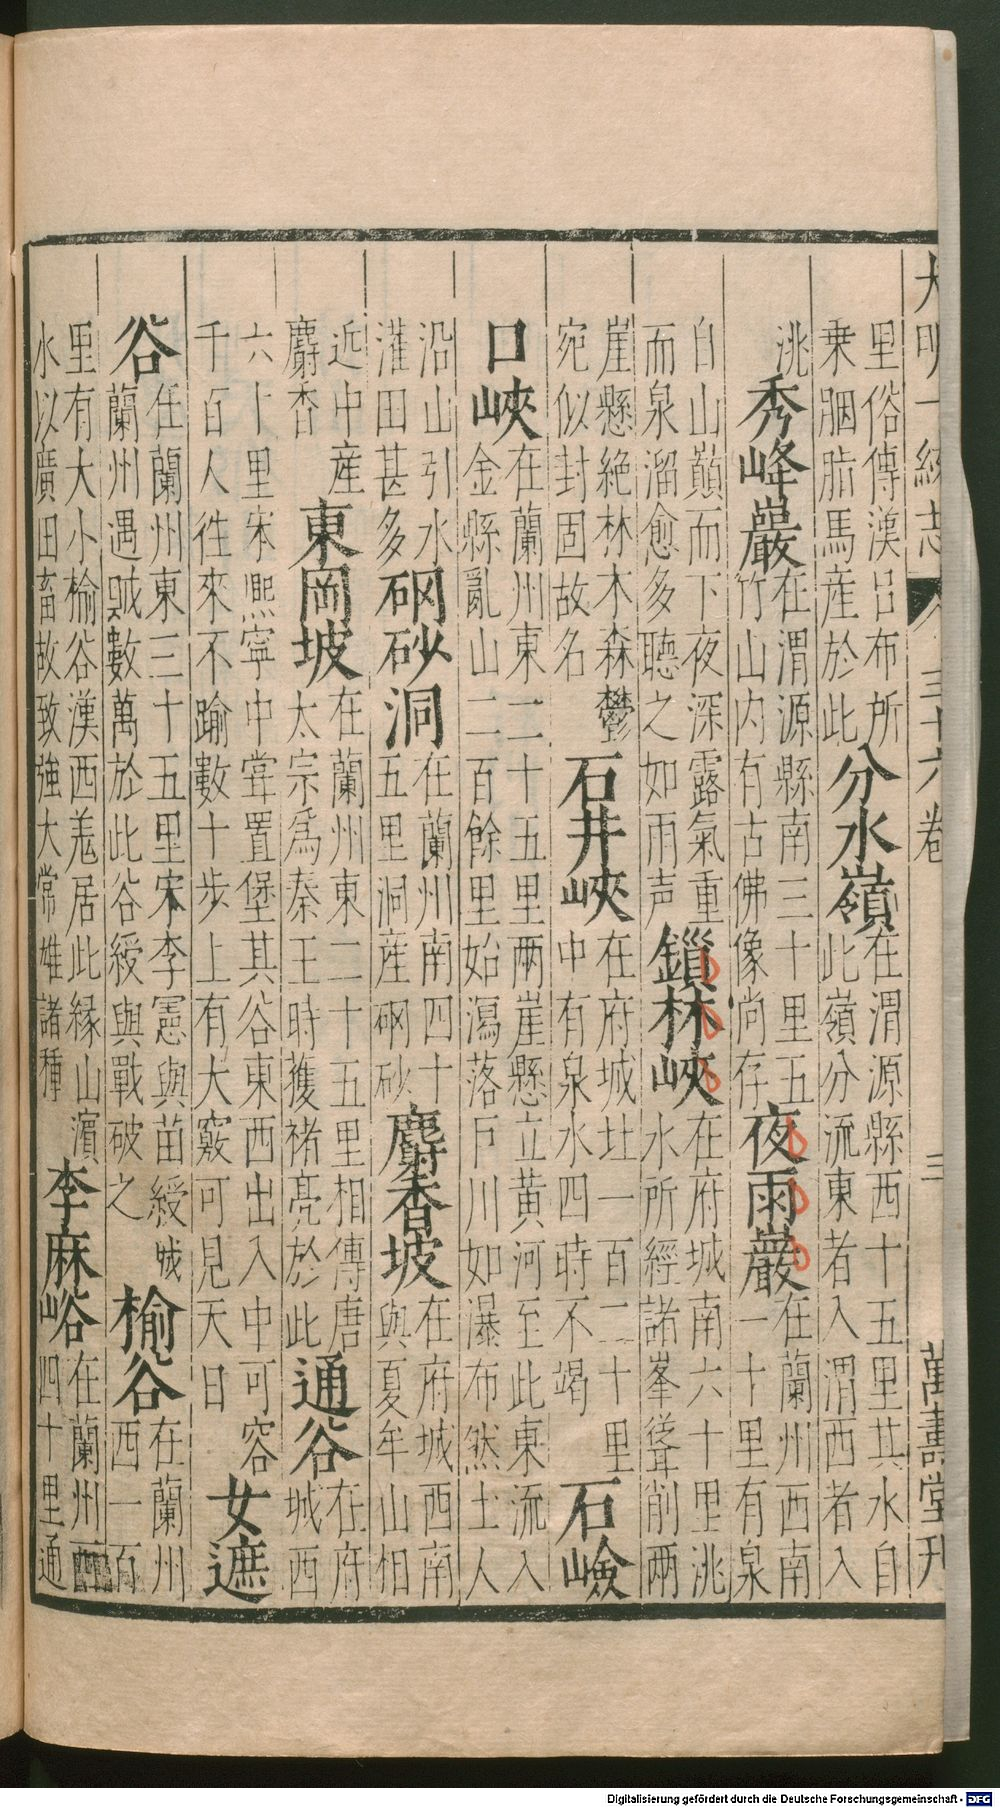 大明一統志 三十六卷 三 萬壽堂刋
里俗傳漢呂布所
乗胭脂馬産於此
分水嶺
在渭源縣西十五里其水自
此嶺分流東者入渭西者入
洮
秀峰巖
在渭源縣南三十里五
竹山内有古佛像尚存
夜雨巖
在蘭州西南
一十里有泉
自山巔而下夜深露氣重
而泉溜愈多聽之如雨声
鎻林峽
在府城南六十里洮
水所經諸峯聳削兩
崖懸絶林木森鬱
宛似封固故名
石井峽
在府城北一百二十里
中有泉水四時不竭
石嶮
口峽
在蘭州東二十五里兩崖懸立黄河至此東流入
金縣亂山二百餘里始瀉落戶川如瀑布然土人
沿山引水
灌田甚多
硇砂洞
在蘭州南四十
五里洞産硇砂
麝香坡
在府城西南
與夏牟山相
近中産
麝香
東岡坡
在蘭州東二十五里相傳唐
太宗爲秦王時獲褚亮於此
通谷
在府
城西
六十里宋熙寧中甞置堡其谷東西出入中可容
千百人徃來不踰數十步上有大竅可見天日
女遮
谷
在蘭州東三十五里宋李憲與苗綬
蘭州遇賊數萬於此谷綬與戰破之
城
榆谷
在蘭州
西一百
里有大小榆谷漢西羗居此縁山濵
水以廣田畜故致強大常雄諸種
李麻峪
在蘭州西
四十里通
Digitalisierung gefördert durch die Deutsche Forschungsgemeinschaft - DFG